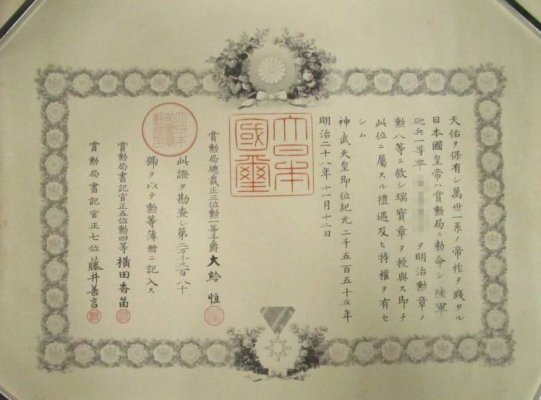 天佑ヲ保有シ萬世一系ノ帝祚ヲ踐タル
日本國皇帝ハ賞勲局ニ勅命シ陸軍
砲兵一等卒 ヲ明治勲章ノ
勲八等ニ敘シ瑞寶章ヲ授與ス即チ
此位ニ屬スル禮遇及ヒ特權ヲ有セ
シム
神武天皇即位紀元二千五百五十五年
明治二十八年十一月十二日
大日本國璽
賞勲局總裁正三位勲一等子爵大給恒
此證ヲ勘査シ第 八十
號ヲ以テ勲等簿冊ニ記入ス
賞勲局書記官正五位勲四等横田香苗
賞勲局書記官正七位藤井善言